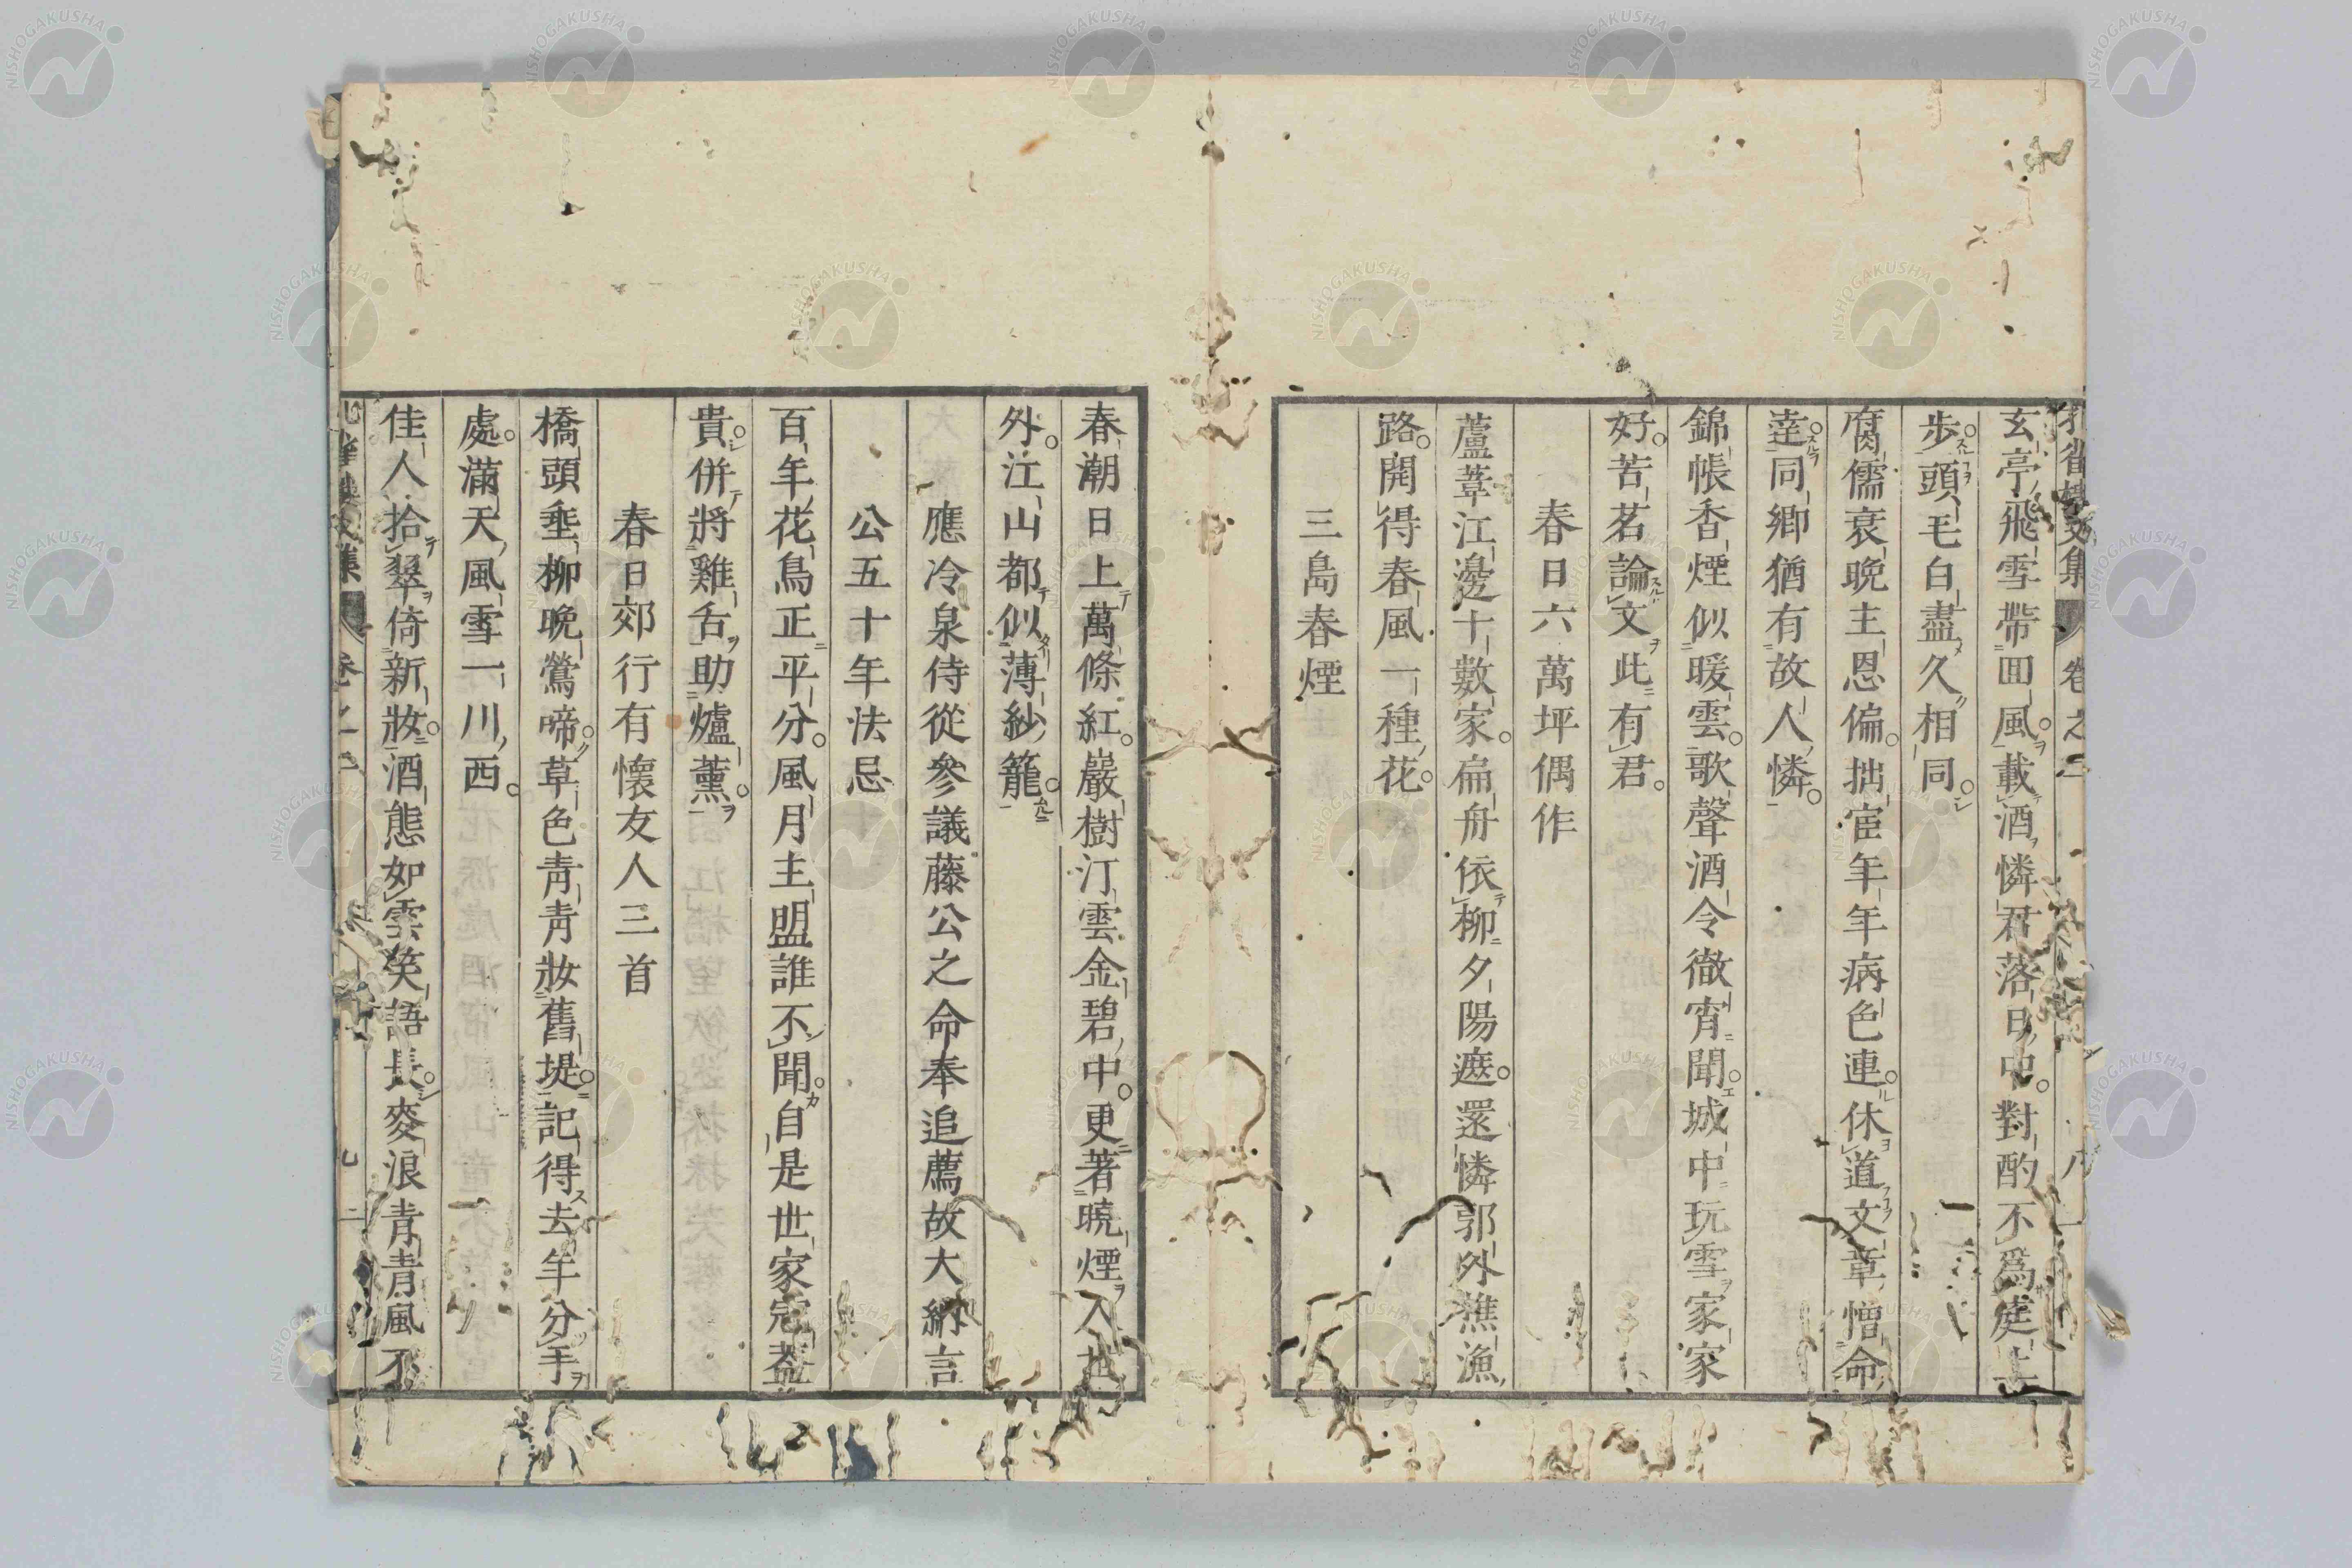 玄亭飛雪帶回風載酒憐君落日中對酌不爲莚
步頭毛白盡久相同
腐儒衰晩主恩偏拙宦年年病色連休道文章憎命
逹同鄉猶有故人憐
錦帳香煙似暖雲歌聲酒令徹宵聞城中玩雪家家
好苦茗論文此有君
春日六萬坪偶作
蘆葦江邊十數家扁舟依柳夕陽遮還憐郭外樵漁
路開得春風一種花
三島春煙
春潮日上萬條紅巖樹汀雲金碧中更著曉煙入
外江山都似薄紗籠
應冷泉侍從參議藤公之命奉追薦故大納言
公五十年法忌
百年花鳥正平分風月主盟誰不聞自是世家冠蓋
貴併將雞舌助爐薰
春日郊行有懷友人三首
橋頭垂柳晩鶯啼草色靑靑妝舊堤記得去年分手
處滿天風雪一川西
佳人拾翠倚新妝酒態如雲笑語長麥浪青青風不
NISHOGAKUSHA